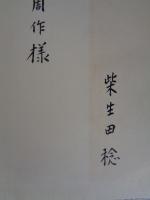 周作様
柴生田稔